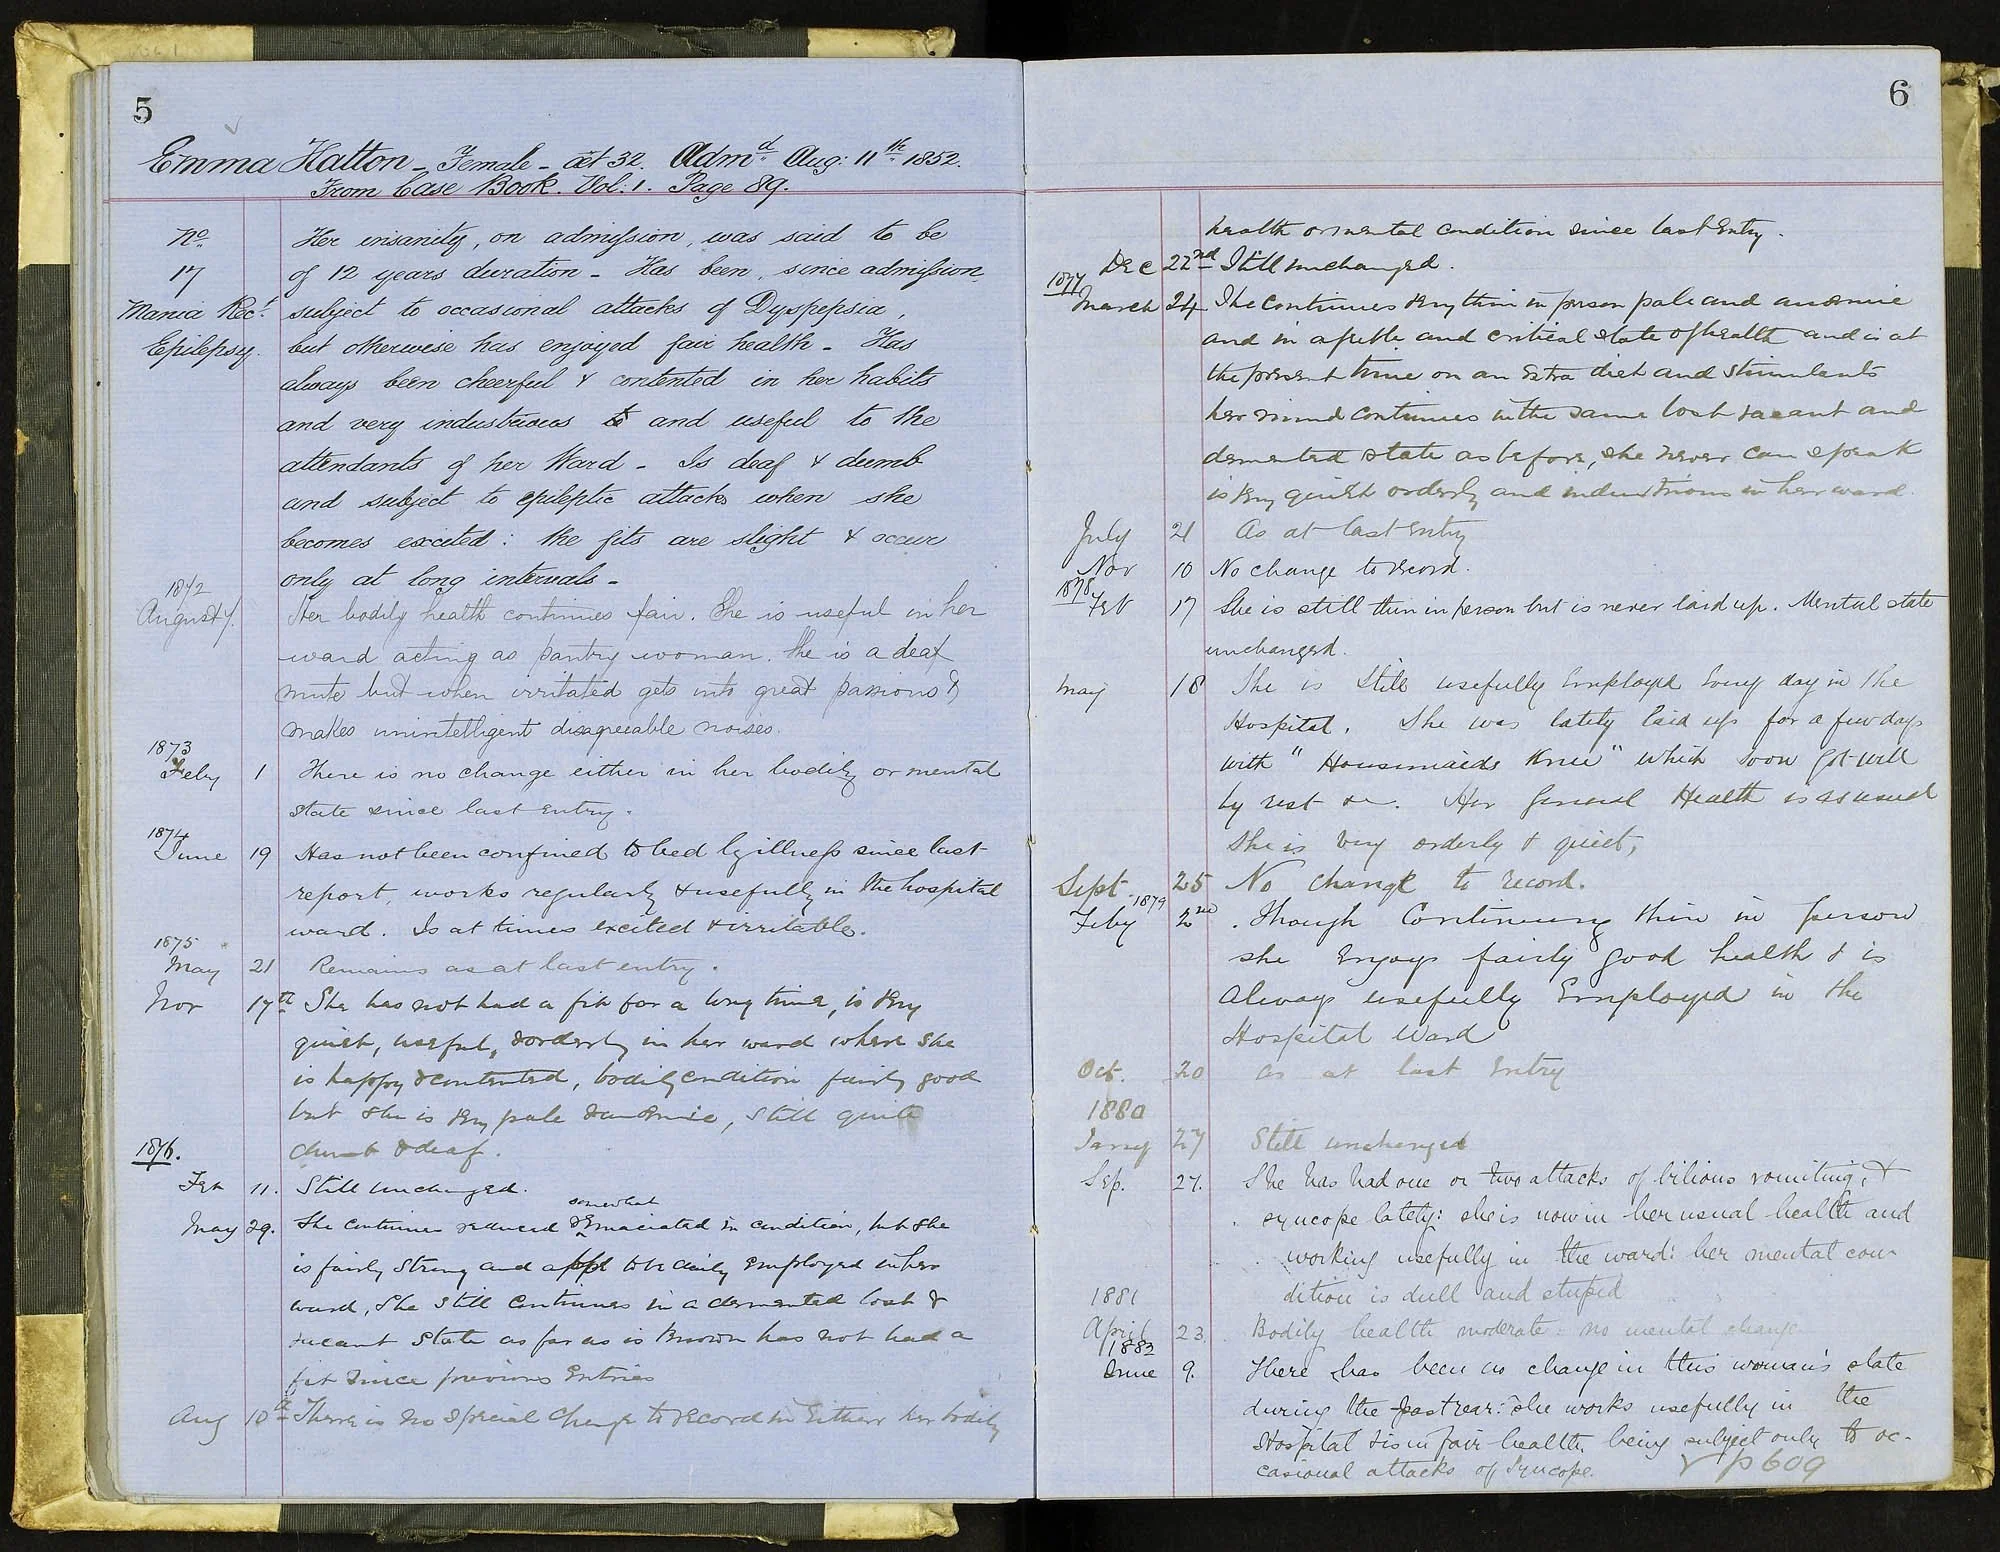 5
Emma Hatton - Female - æt 32. Admd. Aug: 11th. 1852.
From Case Book. Vol: 1. Page 89.
No.
17
Mania Rect.
Epilepsy.
Her insanity, on admission, was said to be
of 12 years duration - Has been, since admission
subject to occasional attacks of Dyspepsia,
but otherwise has enjoyed fair health - Has
always been cheerful & contented in her habits
and very industrious and useful to the
attendants of her Ward - Is deaf & dumb
and subject to epileptic attacks when she
becomes excited: the fits are slight & occur
only at long intervals -
1872
August 7. Her bodily health continues fair. She is useful in her
ward acting as pantry woman. She is a deaf
mute but when irritated gets into great passions &
makes unintelligent disagreeable noises.
1873
Feby 1 There is no change either in her bodily or mental
state since last entry.
1874
June 19 Has not been confined to bed by illness since last
report, works regularly & usefully in the hospital
ward. Is at times excited & irritable.
1875
May 21 Remains as at last entry.
Nov 17th She has not had a fit for a long time, is very
quiet, useful, & orderly in her ward where she
is happy & contented, bodily condition fairly good
but she is very pale & anæmic, still quite
dumb & deaf.
1876.
Feb 11. Still unchanged.
somewhat
May 29. She continues reduced & Emaciated in condition, but she
is fairly strong and able to be daily Employed in her
ward, She still continues in a demented lost &
vacant state as far as is known has not had a
fit since previous Entries
Aug 10th There is no special change to record in Either her bodily
6
health or mental condition since last Entry.
Dec 22nd Still unchanged.
1877
March 24 She continues very thin in person pale and anæmic
and in a feeble and critical state of health and is at
the present time on an Extra diet and stimulants
her mind continues in the same lost vacant and
demented state as before, she never can speak
is very quiet orderly and industrious in her ward.
July 21 As at last Entry
Nov 10 No change to record.
1878
Feb 17 She is still thin in person but is never laid up. Mental state
unchanged.
May 18 She is Still usefully Employed Every day in the
Hospital. She was lately laid up for a few days
with "Housemaids Knee" which soon got well
by rest &c. Her General Health is as usual
She is very orderly & quiet,
Sept 25 No change to record.
1879
Feby 2nd. Though Continuing thin in person
she Enjoys fairly good health & is
always usefully Employed in the
Hospital Ward
Oct. 20 As at last Entry
1880
Jany 27 Still unchanged
Sep. 27. She has had one or two attacks of bilious vomiting, &
syncope lately: she is now in her usual health and
working usefully in the ward: her mental con-
dition is dull and stupid
1881
April 23. Bodily health moderate: no mental change
1883
June 9. There has been no change in this woman's state
during the past year: she works usefully in the
Hospital & is in fair health, being subject only to oc-
casional attacks of Syncope.
v p 609